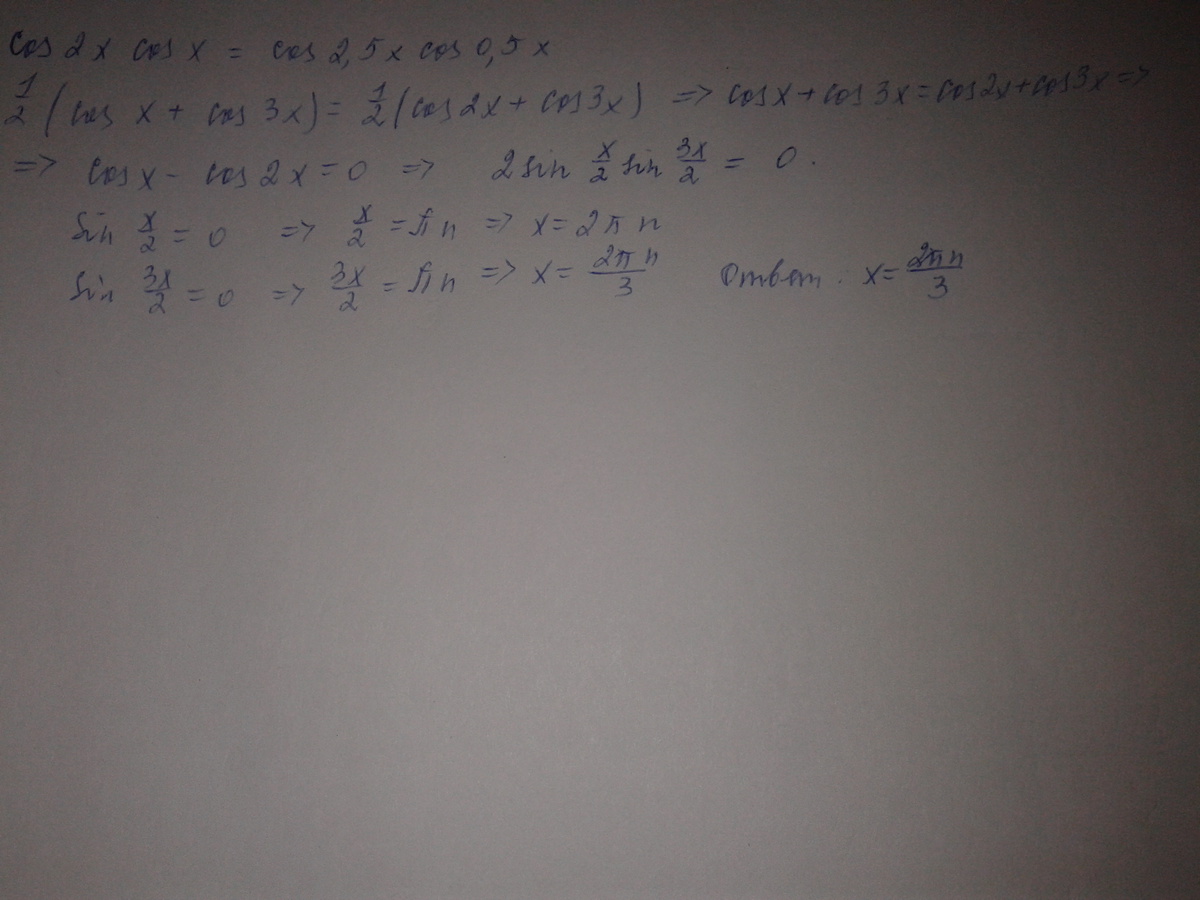 cos 2x cos x = cos 2,5x cos 0,5x
1/2 (cos x + cos 3x) = 1/2 (cos 2x + cos 3x) => cos x + cos 3x = cos 2x + cos 3x =>
=> cos x - cos 2x = 0 => 2 sin x/2 sin 3x/2 = 0.
Sin x/2 = 0 => x/2 = πn => x = 2πn
Sin 3x/2 = 0 => 3x/2 = πn => x = 2πn/3 Ответ: x = 2πn/3